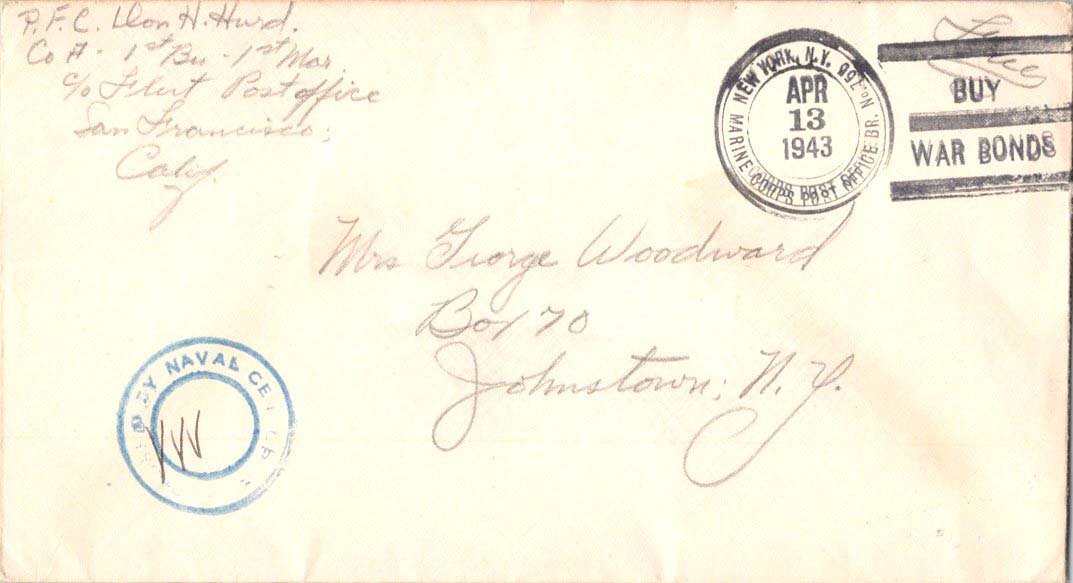 P.F.C. Don H. Hurd.
Co A - 1st Bn - 1st Mar
c/o Fleet Postoffice
San Francisco:
Calif.
Free
NEW YORK, N.Y.
MARINE CORPS POST OFFICE BR. No.
APR
13
1943
BUY
WAR BONDS
Mrs George Woodward
Box 70
Johnstown; N.Y.
BY NAVAL